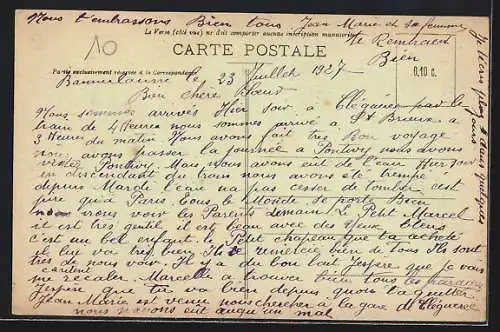 Nous t'embrassons Bien tous Jean Marie et sa femme
Le Verso (côté vue) ne doit comporter aucune inscription manuscrite
te Remercient
10
CARTE POSTALE
Bien
0.10 c.
Partie exclusivement réservée à la Correspondance
le 23 Juillet 1927
Bien chère
Nous sommes arrivés Hier soir a par le
train de 4 Heures nous sommes arrivé a St Brieux a
3 Heures du matin Nous avons fait tres Bon voyage
nous avons passer la journée a Pontivy nous avons
visiter Pontivy. Mais nous avons eut de l'eau Hier soir
en descendant du train nous avons été trempé
depuis Mardi l'eau na pas cesser de tomber c'est
pire qu'a Paris Tous le Monde se porte Bien
nous irons voir les Parents demain Le Petit Marcel
il est tres gentil il est beau avec des yeux Bleus
c'est un bel enfant. le Petit chapeau que tu a acheté
il lui va tres bien Ils te remercie bien de tous Ils sont
tous de nous voir Il y a du Bon lait J'espère que je vais
me recaler. Marcelle a trouver bien tous les
J'espère que tu va bien depuis qu'on t'a quitter
Jean Marie est venu nous chercher a la gare
nous navons eut aucun mal
Je t'écris plus dans quelques
jours